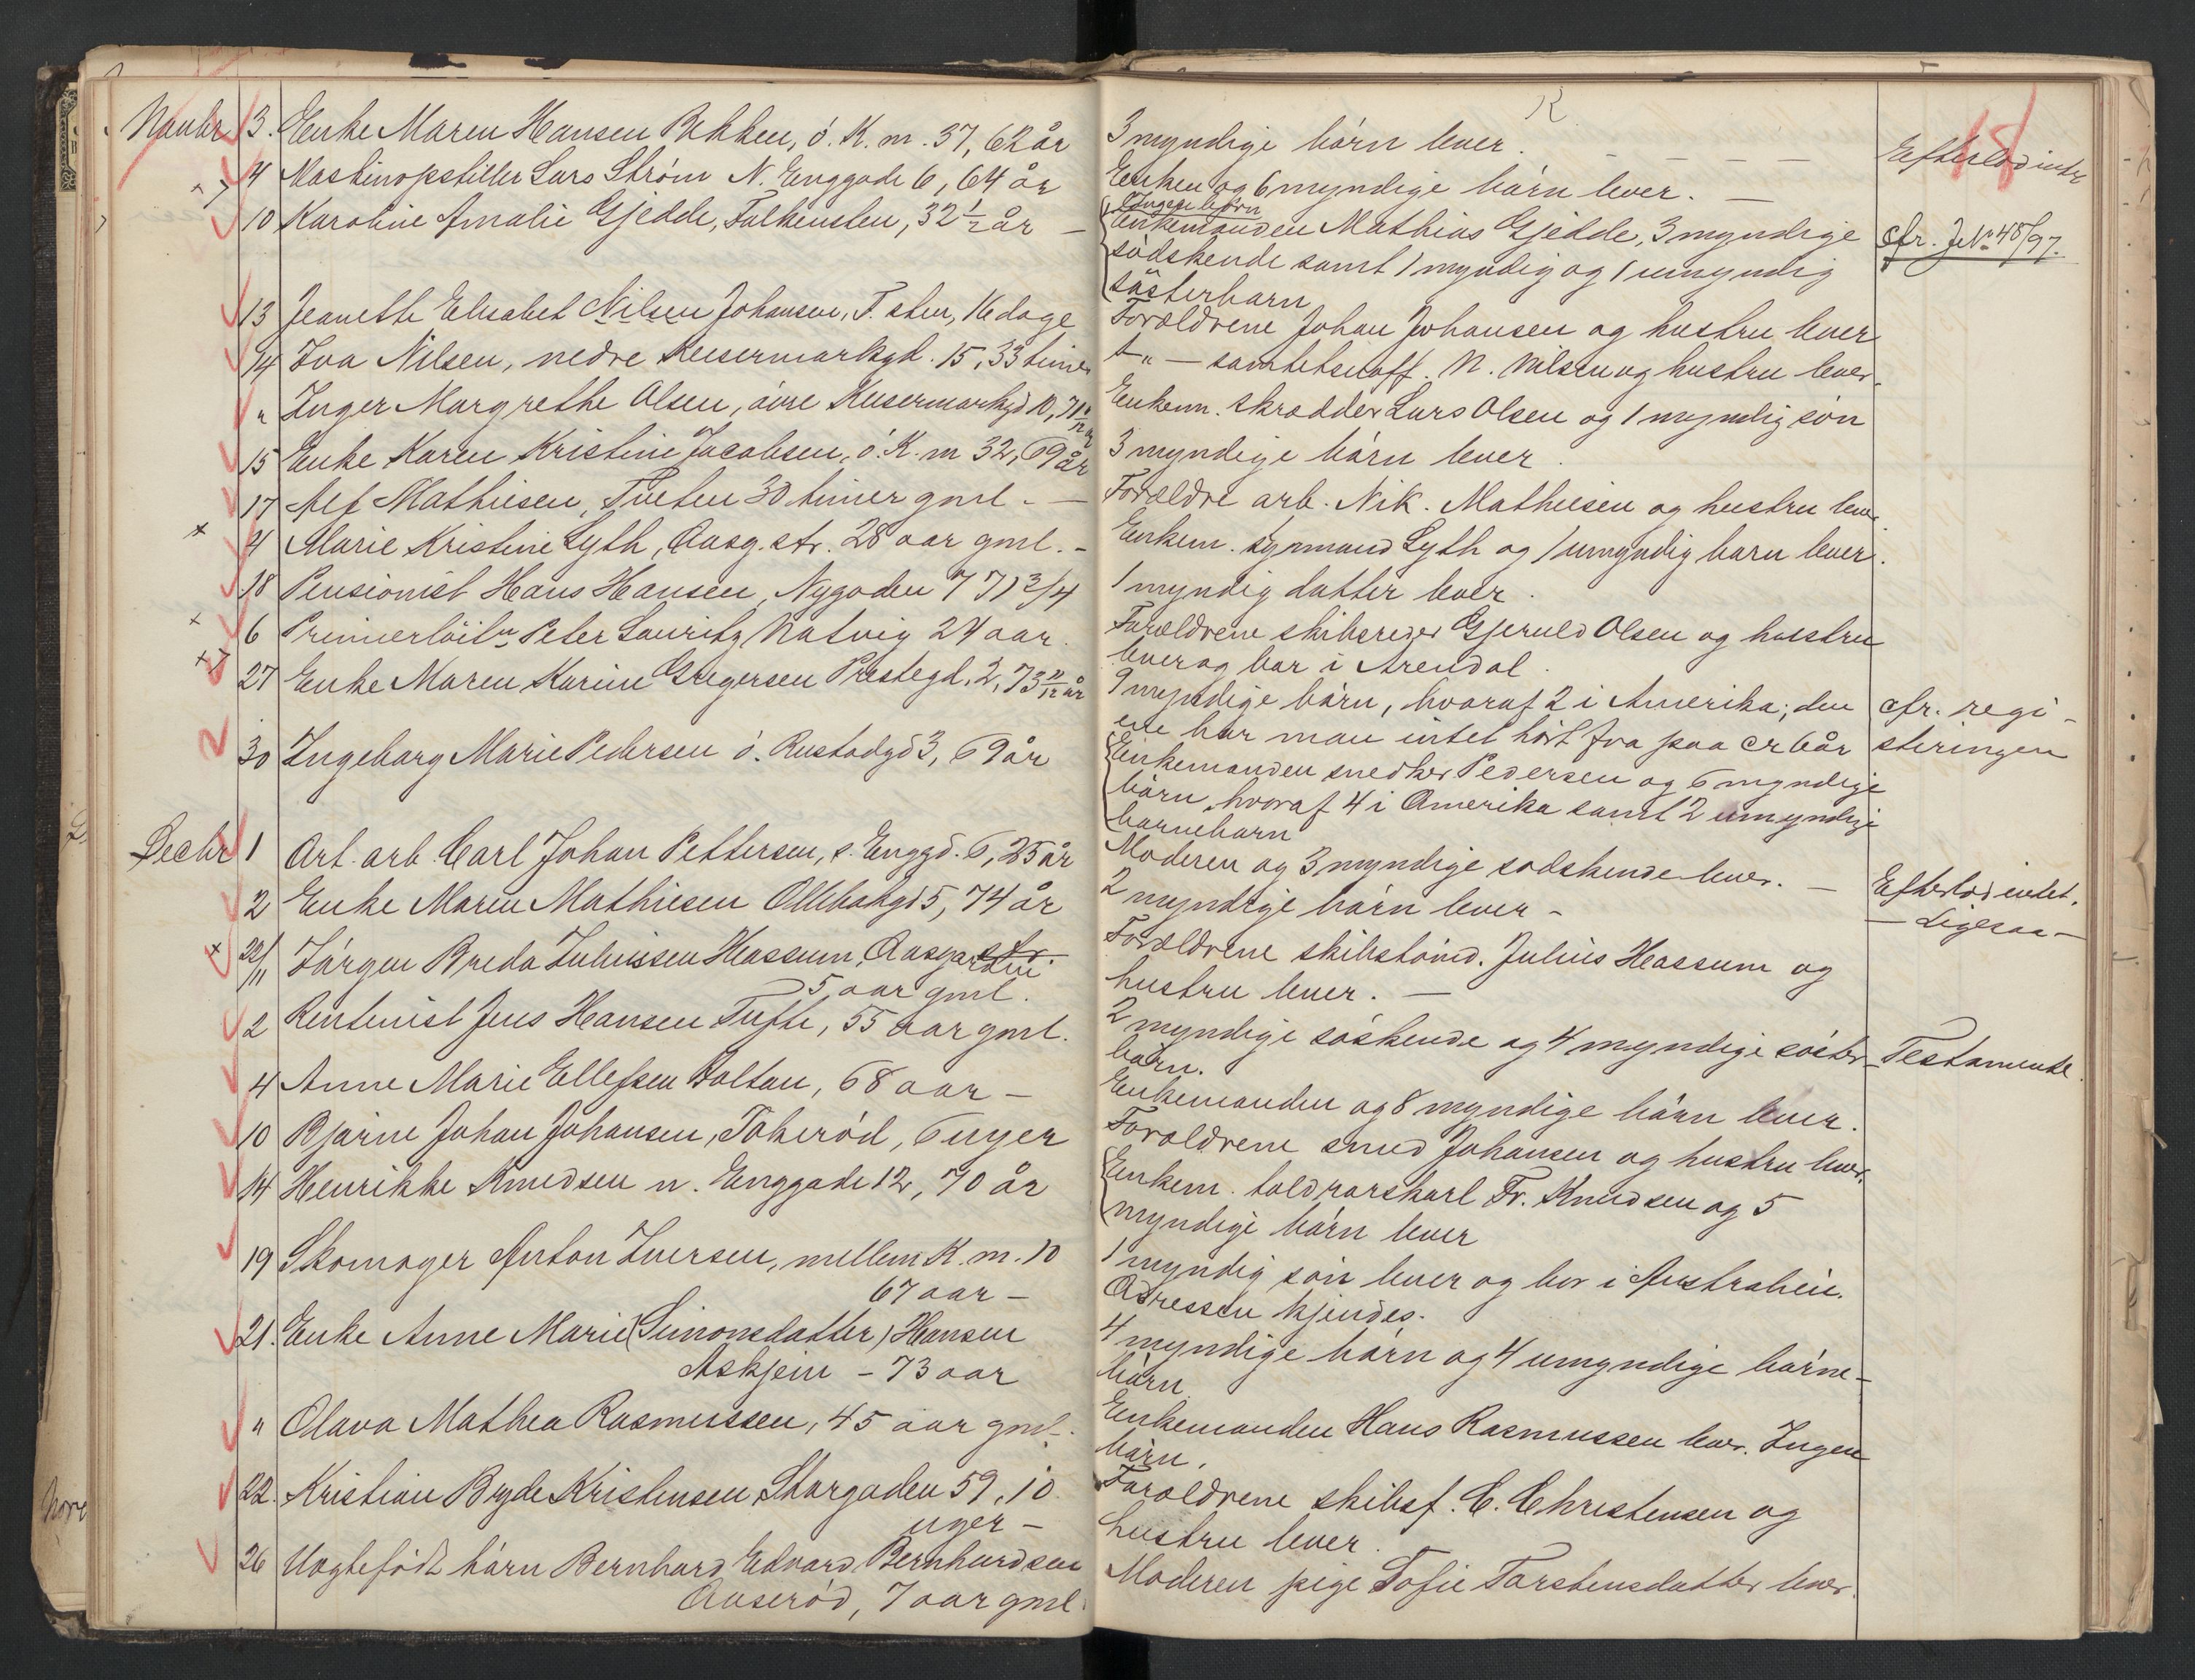 Novbr 3. Enke Maren Hansen Bakken, ó. K. m. 37, 62 år
4 Maskinopstiller Lars Strøm N. Enggade 6, 64 år
10 Karoline Amalie Gjedde, Falkensten, 32 1/2 år —
13 Jeaneth Elisabet Nilsen Johansen, F. sten, 16 dage
14 Iva Nilsen, nedre Keisermarkgd. 15, 33 timer
" Inger Margrethe Olsen, óvre Keisermarkgd 10, 71
15 Enke Karen Kristine Jacobsen, ó. K. m 32, 69 år
17 Alf Mathisen, Tveten 30 timer gml. —
+ 4 Marie Kristine Lyth, Aasg. str. 28 aar gml. -
18 Pensionist Hans Hansen, Nygaden 7 71 3/4
+ 6 Premierlöitn Peter Lauritz Natvig 24 aar.
27 Enke Maren Karine Gregersen Prestegd. 2, 73 11/12 år
30 Ingeborg Marie Pedersen ó. Rustadgd 3, 69 år
Decbr 1 Art. arb. Carl Johan Pettersen, s. Enggd. 6, 25 år
2 Enke Maren Mathisen Ollebakgd 5, 74 år
+ 22/11 Jórgen Breda Juliussen Hassum, Aasgarden
5 aar gml.
2 Rentenist Jens Hansen Tufte, 55 aar gml.
4 Anne Marie Ellefsen Boltau, 68 aar —
10 Bjarne Johan Johansen, Tokeród, 6 uger
14 Henrikke Knudsen n. Enggade 12, 70 år
19 Skomager Anton Iversen, mellem K. m. 10
67 aar —
21. Enke Anne Marie (Simonsdatter) Hansen
Askjem - 73 aar
" Olava Mathea Rasmussen, 45 aar gml.
22. Kristian Bryde Kristensen Storgaden 59, 10
uger —
26 Uægtefödt bårn Bernhard Edvard Bernhardsen
Aaseród, 7 aar gml.
3 myndige bórn lever. — — — — — Efterlod intet
Enken og 6 myndige bórn lever. —
Ingen börn
Enkemanden Mathias Gjedde, 3 myndige cfr. J. No 48/97.
södskende samt 1 myndig og 1 umyndig
sösterbarn
Forældrene Johan Johansen og hustru lever
—"— N. Nilsen og hustru lever.
Enkem. skrædder Lars Olsen og 1 myndig són
3 myndige bórn lever.
Forældre arb. Nik. Mathisen og hustru lever.
Enkem. symand Lyth og 1 umyndig barn lever.
1 myndig datter lever.
Forældrene skibsreder Gjeruld Olsen og hustru
lever og bor i Arendal.
9 myndige bórn, hvoraf 2 i Amerika; den cfr. regi-
ene har man intet hórt fra paa cr 6 år steringen
Enkemanden snedker Pedersen og 6 myndige
bórn, hvoraf 4 i Amerika samt 2 umyndige
barnebarn
Moderen og 3 myndige sódskende lever. — Efterlod intet.
2 myndige bórn lever - — Ligesaa —
Forældrene skibstómd. Julius Hassum og
hustru lever. —
2 myndige sóskende og 4 myndige sóster- Testamente.
bórn.
Enkemanden og 8 myndige bórn lever.
Forældrene smed Johansen og hustru lever.
Enkem. toldrorskarl Fr. Knudsen og 5
myndige bórn lever
1 myndig són lever og bor i Australien.
Adressen kjendes.
4 myndige bórn og 4 umyndige bórne-
bórn
Enkemanden Hans Rasmussen lever. Ingen
bórn.
Forældrene skibsf. C. Christensen og
hustru lever.
Moderen pige Sofie Torstensdatter lever.